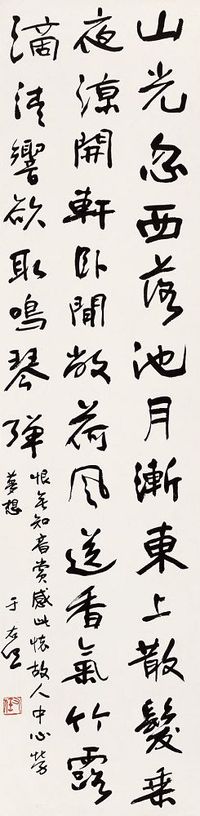 山光忽西落池月漸東上散髮乘
夜涼開軒臥閒敞荷風送香氣竹露
滴清響欲取鳴琴彈
恨無知音賞感此懷故人中心勞
夢想
于右任